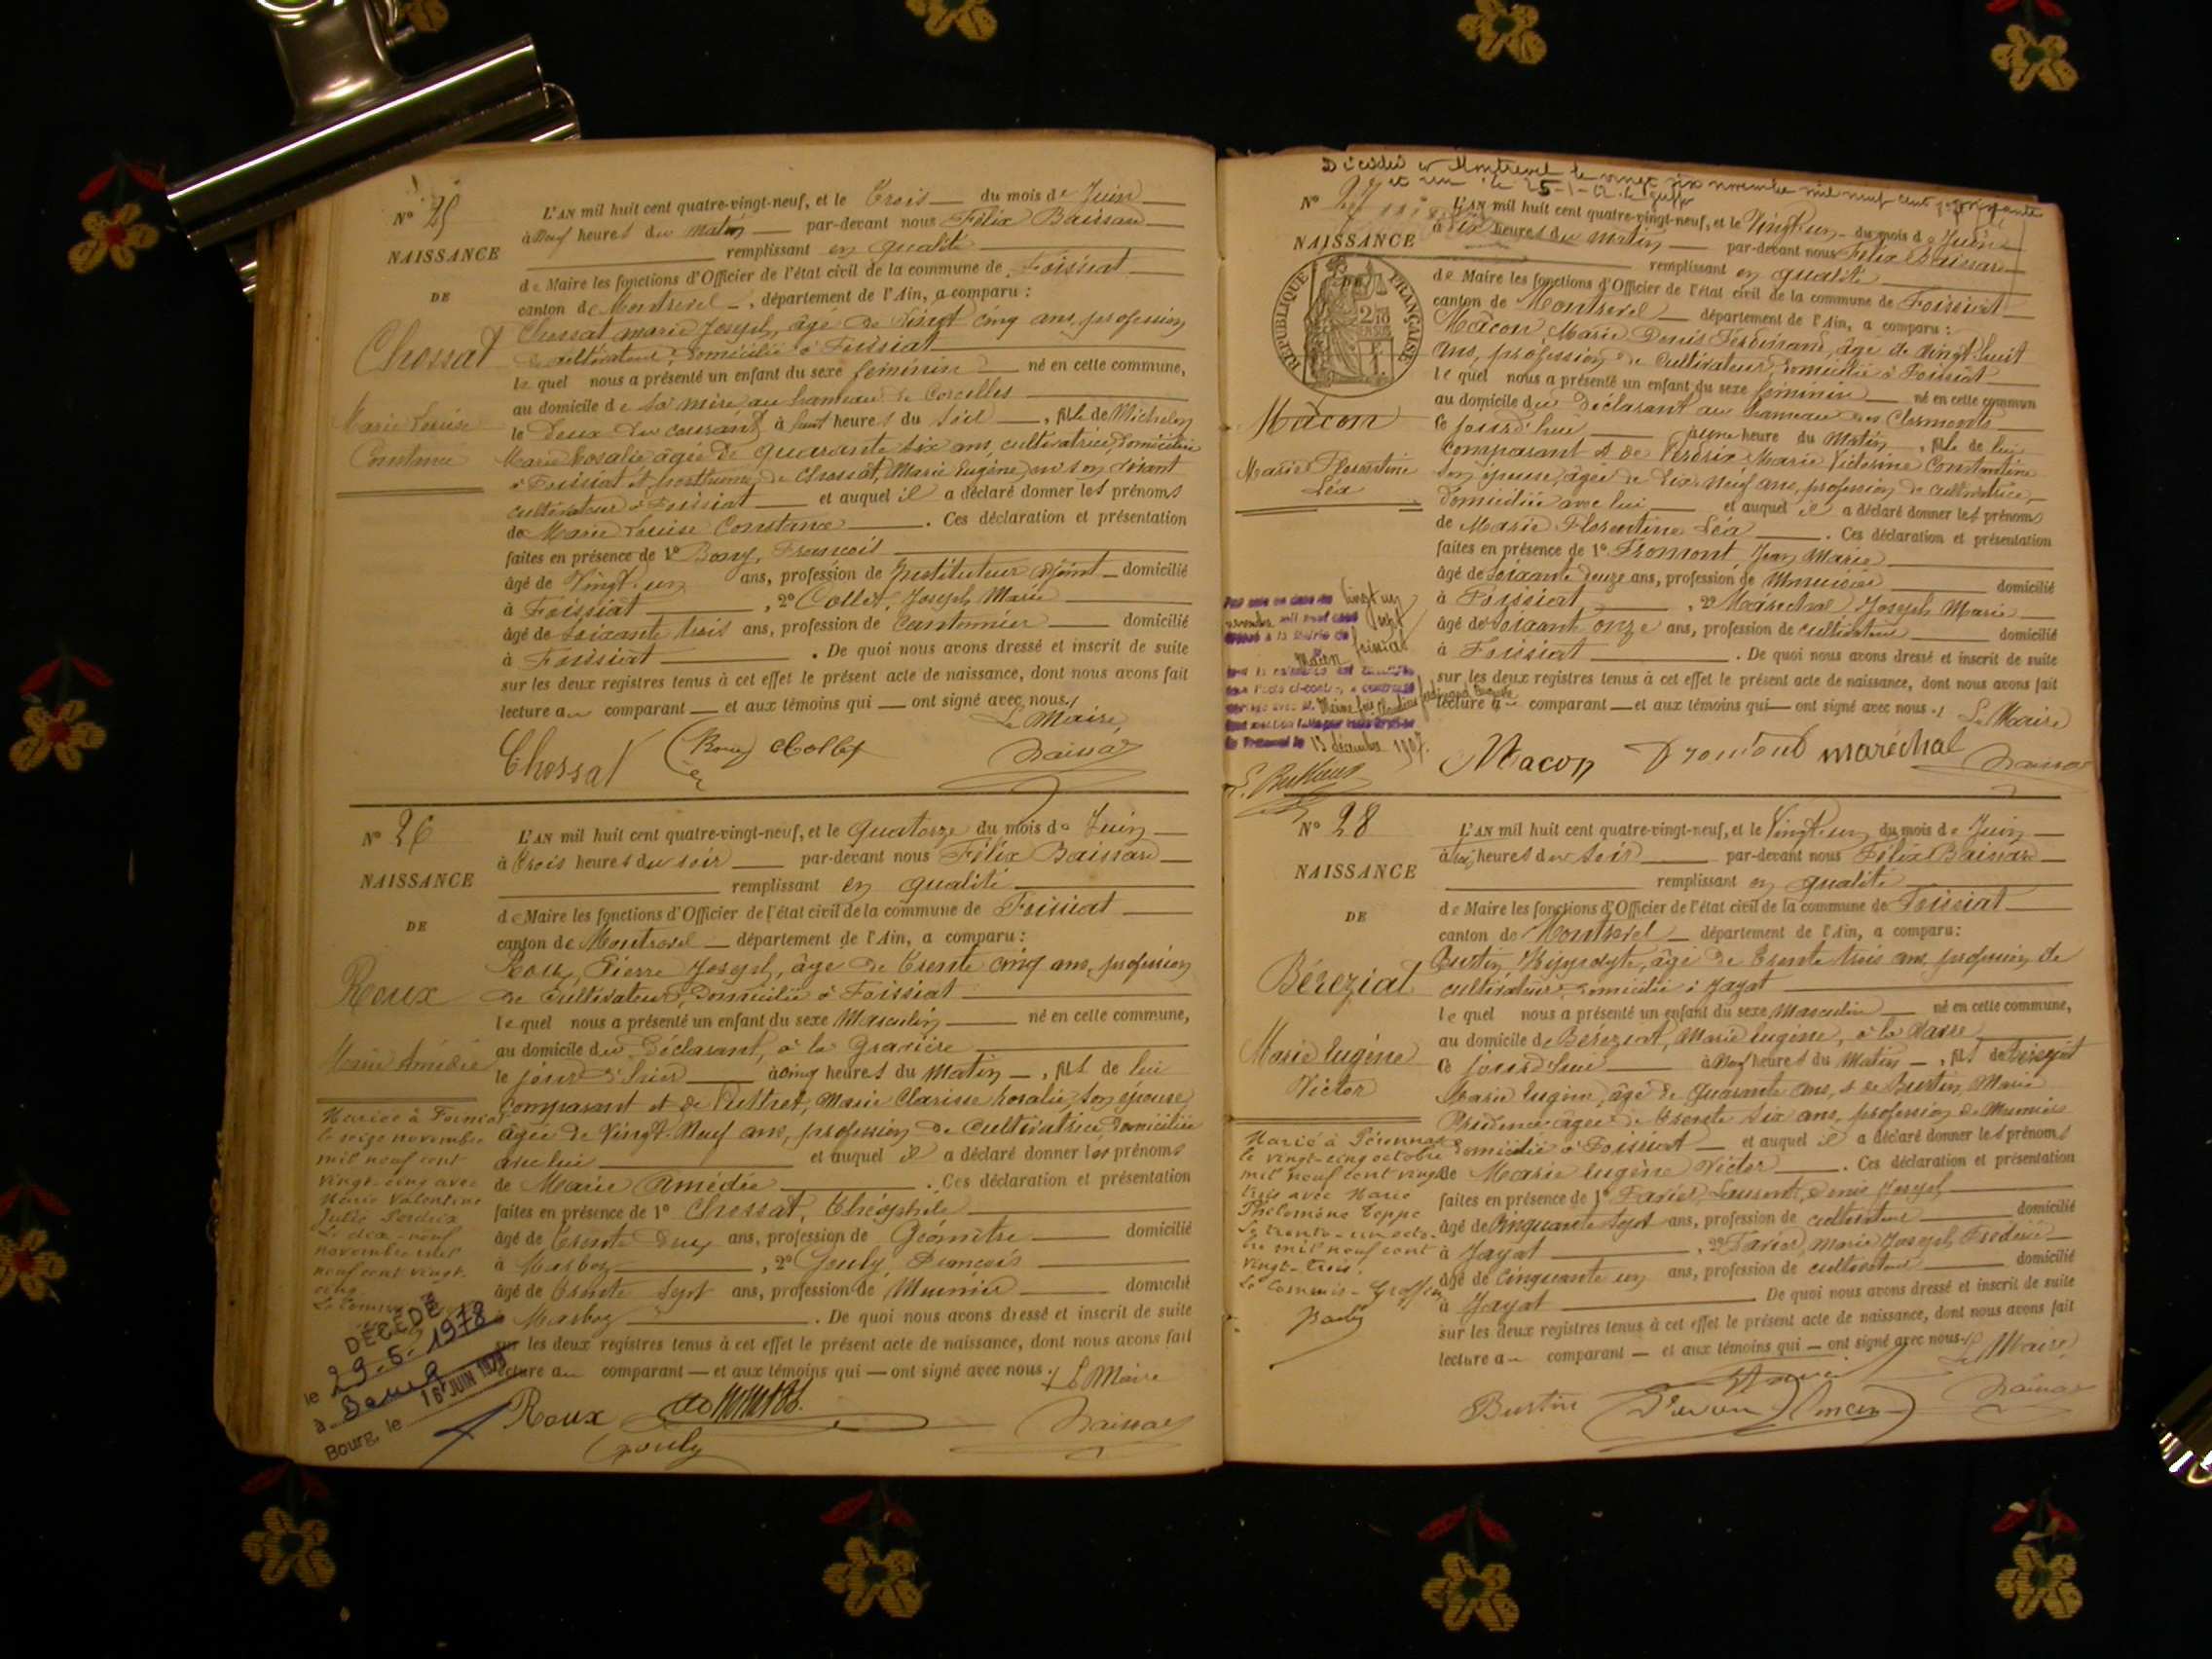 N° 25
NAISSANCE
DE
Chossat
Marie Louise
Constance
L'AN mil huit cent quatre-vingt-neuf, et le Trois du mois de Juin
à Neuf heures du matin par-devant nous Félix Baissard
remplissant en qualité
de Maire les fonctions d'Officier de l'état civil de la commune de Foissiat
canton de Montrevel, département de l'Ain, a comparu :
Chossat Marie Joseph, âgé de Vingt cinq ans, profession
de cultivateur, domicilié à Foissiat
lequel nous a présenté un enfant du sexe féminin né en cette commune,
au domicile de sa mère au hameau de Corcelles
le Deux du courant à huit heures du soir, fille de Michelon
Marie Rosalie âgée de quarante six ans, cultivatrice, domiciliée
à Foissiat et posthume de Chossat, Marie Eugène, en son vivant
cultivateur à Foissiat et auquel il a déclaré donner les prénoms
de Marie Louise Constance. Ces déclaration et présentation
faites en présence de 1° Bouy, François
âgé de Vingt un ans, profession de Instituteur adjoint domicilié
à Foissiat, 2° Collet, Joseph Marie
âgé de soixante trois ans, profession de Cantonnier domicilié
à Foissiat. De quoi nous avons dressé et inscrit de suite
sur les deux registres tenus à cet effet le présent acte de naissance, dont nous avons fait
lecture au comparant et aux témoins qui ont signé avec nous.
Le Maire,
Chossat Bouy Collet Baissard
N° 26
NAISSANCE
DE
Roux
Marie Amédée
Marié à Foissiat
le seize novembre
mil neuf cent
vingt-cinq avec
Marie Valentine
Julie Perdrix
Le dix-neuf
novembre mil
neuf cent vingt-
cinq
DÉCÉDÉ
le 29-5-1978
à Bourg
Bourg, le 16 JUIN 1978
L'AN mil huit cent quatre-vingt-neuf, et le quatorze du mois de Juin
à Trois heures du soir par-devant nous Félix Baissard
remplissant en qualité
de Maire les fonctions d'Officier de l'état civil de la commune de Foissiat
canton de Montrevel département de l'Ain, a comparu :
Roux, Pierre Joseph, âgé de Trente cinq ans, profession
de cultivateur, domicilié à Foissiat
lequel nous a présenté un enfant du sexe Masculin né en cette commune,
au domicile du Déclarant, à la Gravière
le jourd'hui à cinq heures du matin, fils de lui
comparant et de Puthet, Marie Clarisse Rosalie, son épouse
âgée de Vingt-Neuf ans, profession de Cultivatrice domiciliée
avec lui et auquel il a déclaré donner les prénoms
de Marie Amédée. Ces déclaration et présentation
faites en présence de 1° Chossat, Théophile
âgé de Trente deux ans, profession de Géomètre domicilié
à Marboz, 2° Gouly, François
âgé de Trente sept ans, profession de Meunier domicilié
à Marboz. De quoi nous avons dressé et inscrit de suite
sur les deux registres tenus à cet effet le présent acte de naissance, dont nous avons fait
lecture au comparant et aux témoins qui ont signé avec nous.
Le Maire
Roux
Gouly Baissard
Décédée à Montrevel le vingt six novembre mil neuf cent soixante
et un le 25-1-62 le greffier
N° 27
NAISSANCE
RÉPUBLIQUE FRANÇAISE
Mâcon
Marie Florentine
Léa
vingt un
novembre mil neuf cent sept
Foissiat
Mâcon
13 décembre 1907.
L'AN mil huit cent quatre-vingt-neuf, et le Vingt-un du mois de Juin
à dix heures du matin par-devant nous Félix Baissard
remplissant en qualité
de Maire les fonctions d'Officier de l'état civil de la commune de Foissiat
canton de Montrevel département de l'Ain, a comparu :
Mâcon, Marie Denis Ferdinand, âgé de Vingt-huit
ans, profession de Cultivateur, domicilié à Foissiat
lequel nous a présenté un enfant du sexe féminin né en cette commun
au domicile du Déclarant au hameau des Clermonts
Ce jourd'hui à une heure du Matin, fille de lui
comparant et de Perdrix Marie Victorine Constantine
son épouse, âgée de Dix-Neuf ans, profession de cultivatrice
domiciliée avec lui et auquel il a déclaré donner les prénoms
de Marie Florentine Léa. Ces déclaration et présentation
faites en présence de 1° Fromont, Jean Marie
âgé de soixante douze ans, profession de Menuisier domicilié
à Foissiat, 2° Maréchal Joseph Marie
âgé de soixante onze ans, profession de cultivateur domicilié
à Foissiat. De quoi nous avons dressé et inscrit de suite
sur les deux registres tenus à cet effet le présent acte de naissance, dont nous avons fait
lecture au comparant et aux témoins qui ont signé avec nous.
Le Maire
Macon Fromont maréchal Baissard
N° 28
NAISSANCE
DE
Béréziat
Marie Eugène
Victor
Marié à Péronnas
le vingt-cinq octobre
mil neuf cent vingt
trois avec Marie
Philomène Teppe
Le trente-un octo-
bre mil neuf cent
vingt-trois.
Le Commis-Greffier
L'AN mil huit cent quatre-vingt-neuf, et le Vingt-un du mois de Juin
à six heures du soir par-devant nous Félix Baissard
remplissant en qualité
de Maire les fonctions d'Officier de l'état civil de la commune de Foissiat
canton de Montrevel département de l'Ain, a comparu :
Bustin, Hippolyte, âgé de Trente trois ans, profession de
cultivateur, domicilié à Jayat
lequel nous a présenté un enfant du sexe Masculin né en cette commune,
au domicile de Béréziat, Marie Eugène, à la
Ce jourd'hui à Neuf heures du Matin, fils de Béréziat
Marie Eugène, âgé de quarante ans, et de Bustin, Marie
Prudence âgée de Trente six ans, profession de Meuniers
domiciliés à Foissiat et auquel il a déclaré donner les prénoms
de Marie Eugène Victor. Ces déclaration et présentation
faites en présence de 1° Favier, Laurent, Denis Joseph
âgé de Cinquante sept ans, profession de cultivateur domicilié
à Jayat, 2° Favier, Marie Joseph Frédéric
âgé de Cinquante un ans, profession de cultivateur domicilié
à Jayat De quoi nous avons dressé et inscrit de suite
sur les deux registres tenus à cet effet le présent acte de naissance, dont nous avons fait
lecture au comparant et aux témoins qui ont signé avec nous.
Le Maire
Bustin Baissard